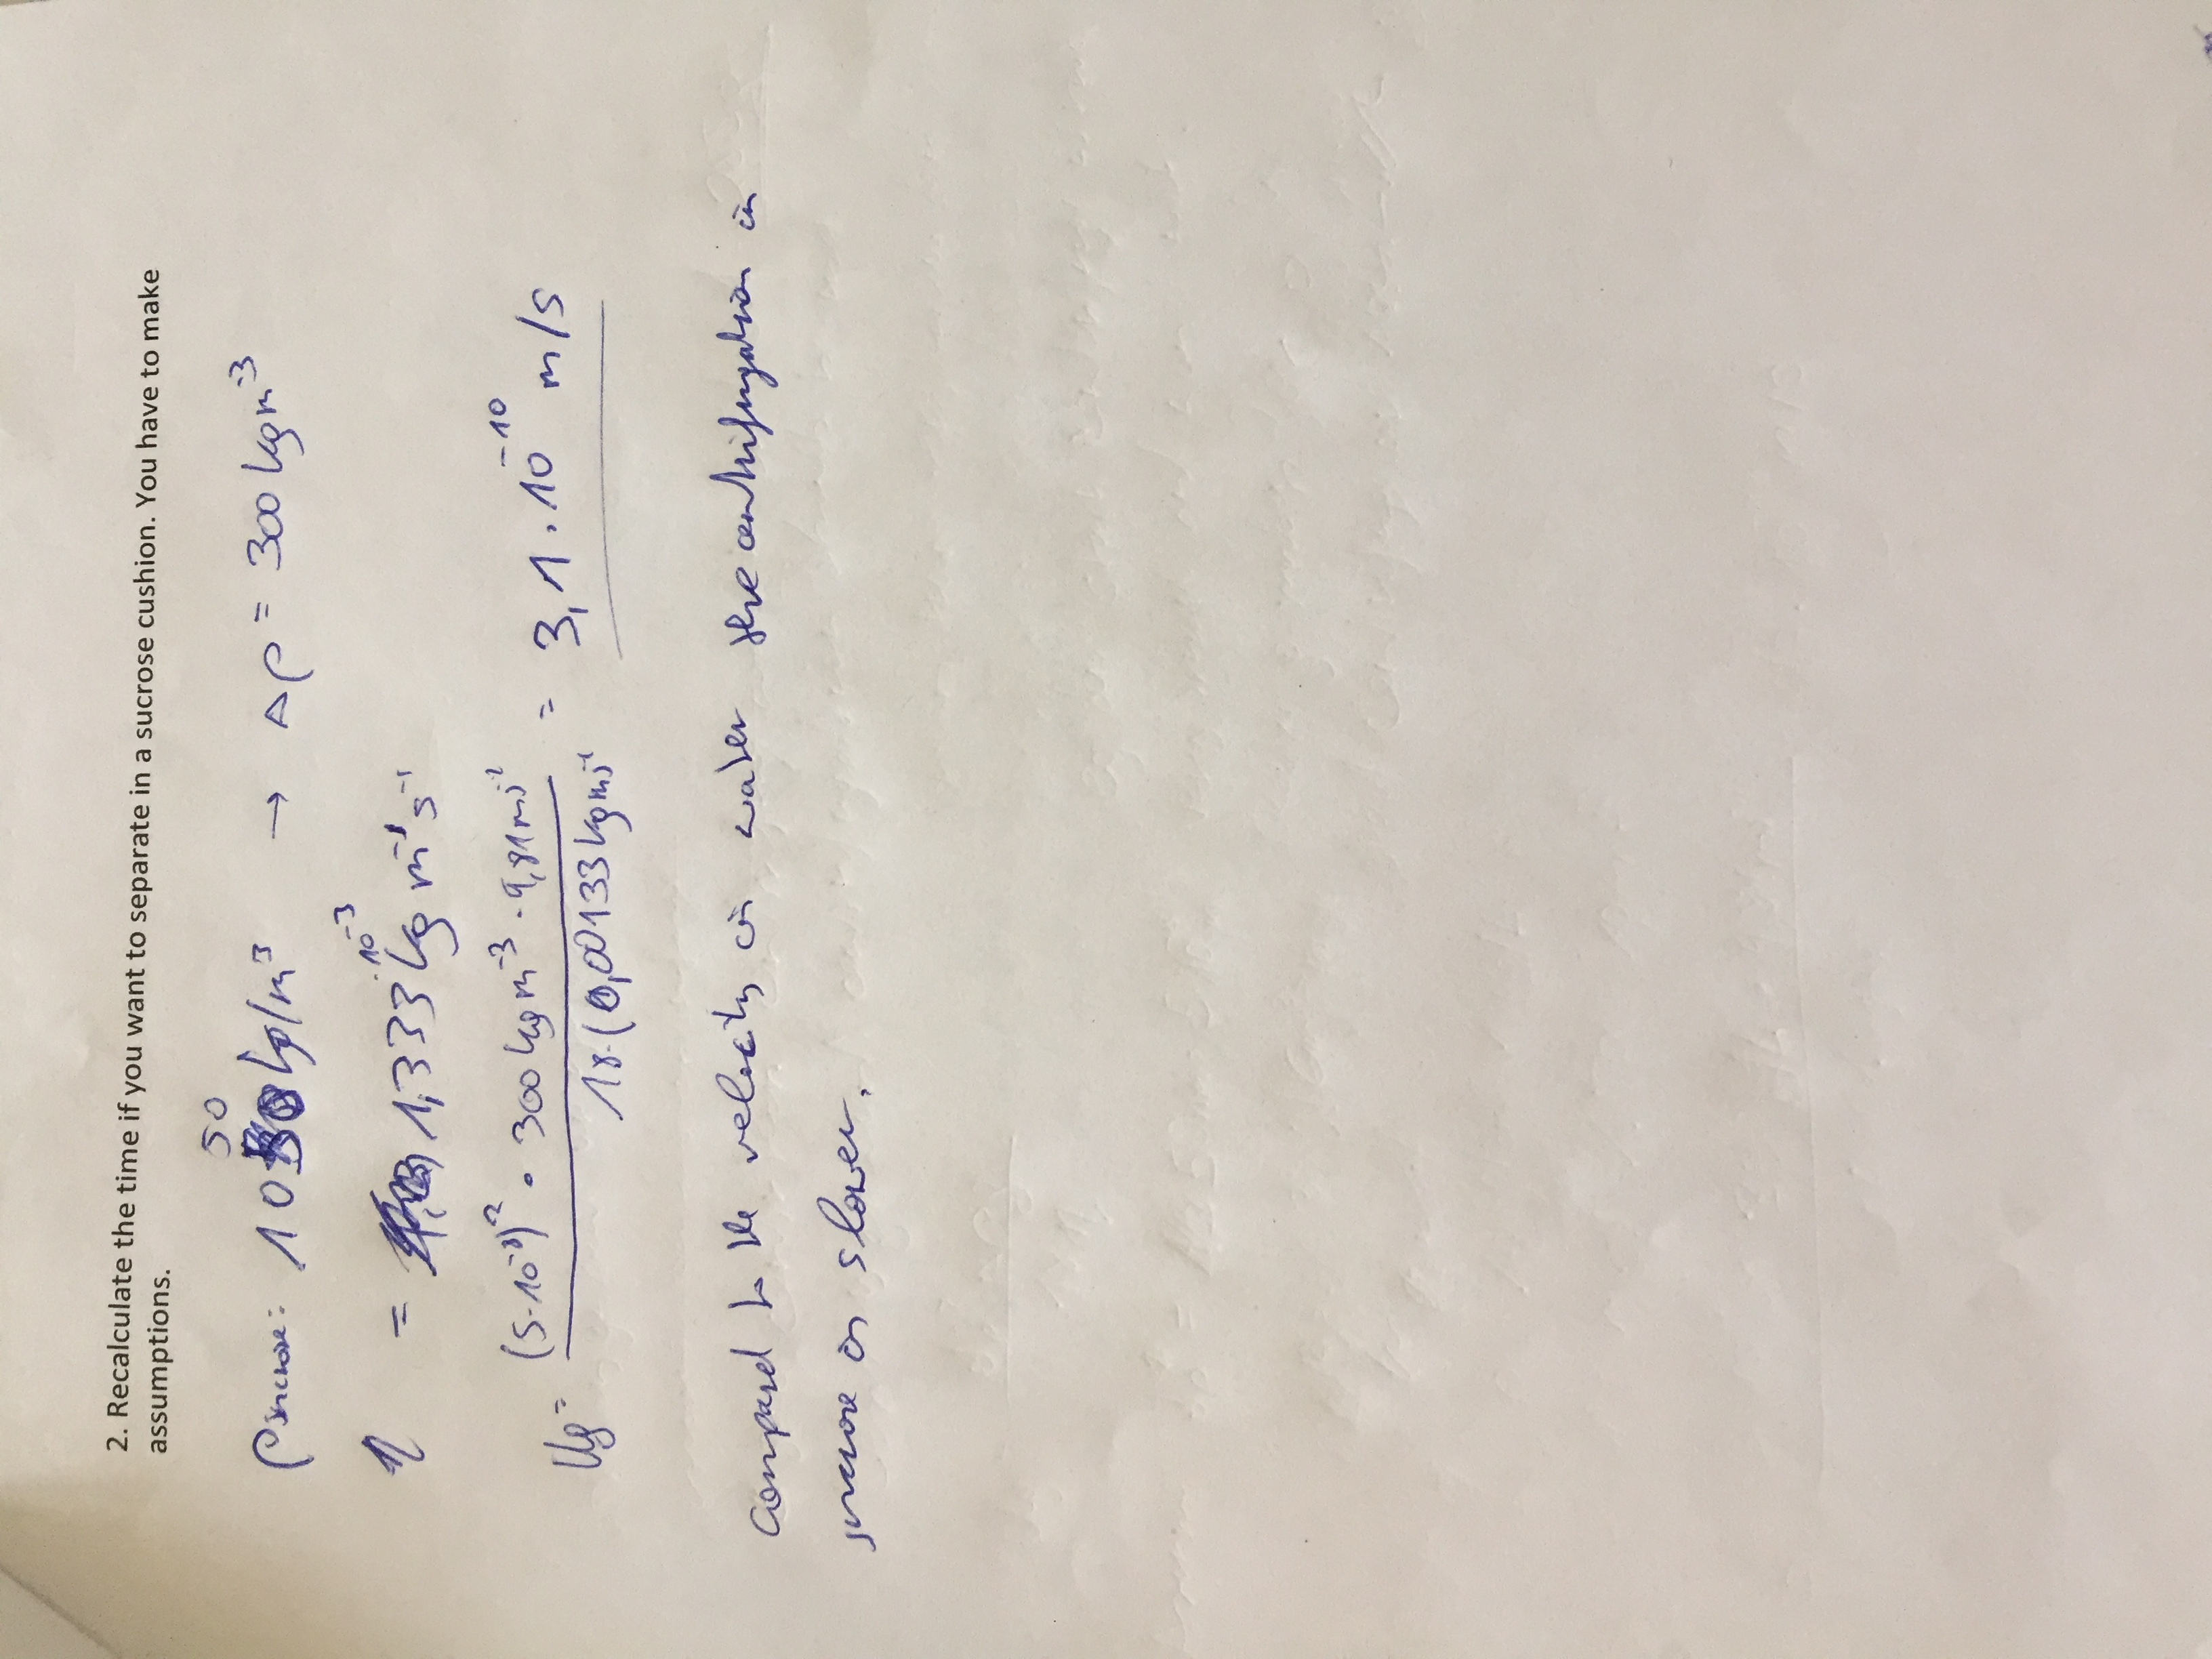 2. Recalculate the time if you want to separate in a sucrose cushion. You have to make
assumptions.
ρsucrose: 1050 kg/m³ → Δρ = 300 kg m⁻³
η = 1,333·10⁻³ kg m⁻¹ s⁻¹
Ug = (5·10⁻⁸)² · 300 kg m⁻³ · 9,81 m s⁻² / 18·(0,00133 kg m⁻¹ s⁻¹) = 3,1 · 10⁻¹⁰ m/s
Compared to the velocity in water the centrifugation in
sucrose is slower.